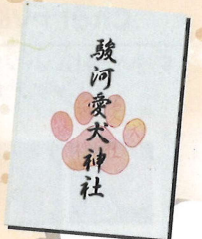 駿河愛犬神社